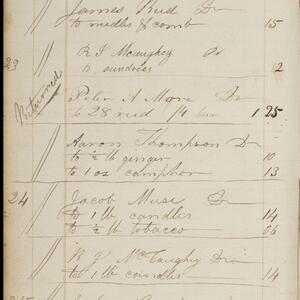 James Reid Dr
to needles & comb 15
R J Mcaughey Dr
23 to sundries 12
Returned
Peter A Moore Dr
to 28 reid 14 1 25
Aaron Thompson Dr
to ½ lb ginger 10
to 1 oz camphor 13
24 Jacob Muse Dr
to 1 lb candles 14
to ½ lb tobacco 06
R J McCaughey Dr
to 1 lb candles 14
25